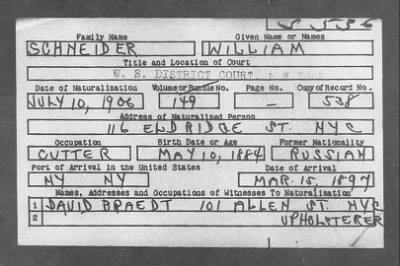 S 536
Family Name Given Name or Names
SCHNEIDER WILLIAM
Title and Location of Court
U. S. DISTRICT COURT,
Date of Naturalization Volume or Bundle No. Page No. Copy of Record No.
JULY 10, 1906 149 — 538
Address of Naturalized Person
116 ELDRIDGE ST. NYC
Occupation Birth Date or Age Former Nationality
CUTTER MAY 10, 1884 RUSSIAN
Port of Arrival in the United States Date of Arrival
NY NY MAR. 15, 1897
Names, Addresses and Occupations of Witnesses To Naturalization
1 DAVID BRAEDT 101 ALLEN ST. NYC
2 UPHOLSTERER